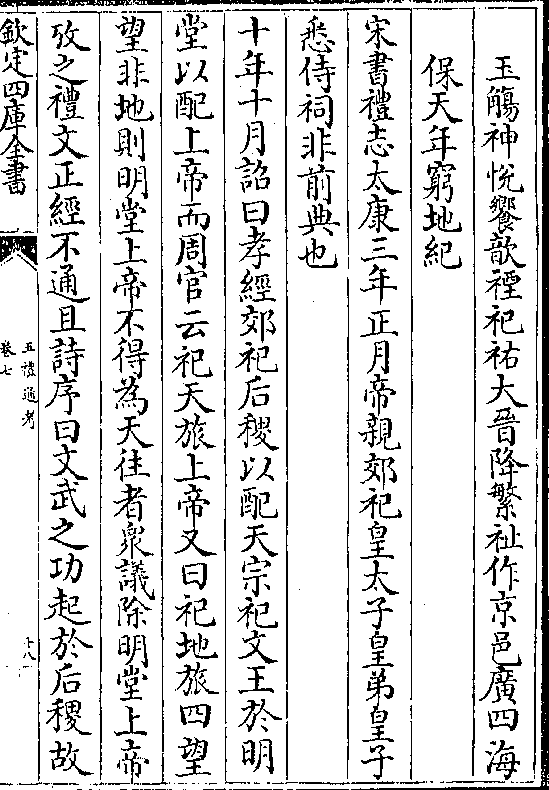 玉觴神悅饗歆禋祀祐大晉降繁祉作京邑廣四海
保天年窮地紀
宋書禮志太康三年正月帝親郊祀皇太子皇弟皇子
悉侍祠非前典也
十年十月詔曰孝經郊祀后稷以配天宗祀文王於明
堂以配上帝而周官云祀天旅上帝又曰祀地旅四望
望非地則明堂上帝不得為天往者衆議除明堂上帝
攷之禮文正經不通且詩序曰文武之功起於后稷故
欽定四庫全書
五禮通考
卷七
十八